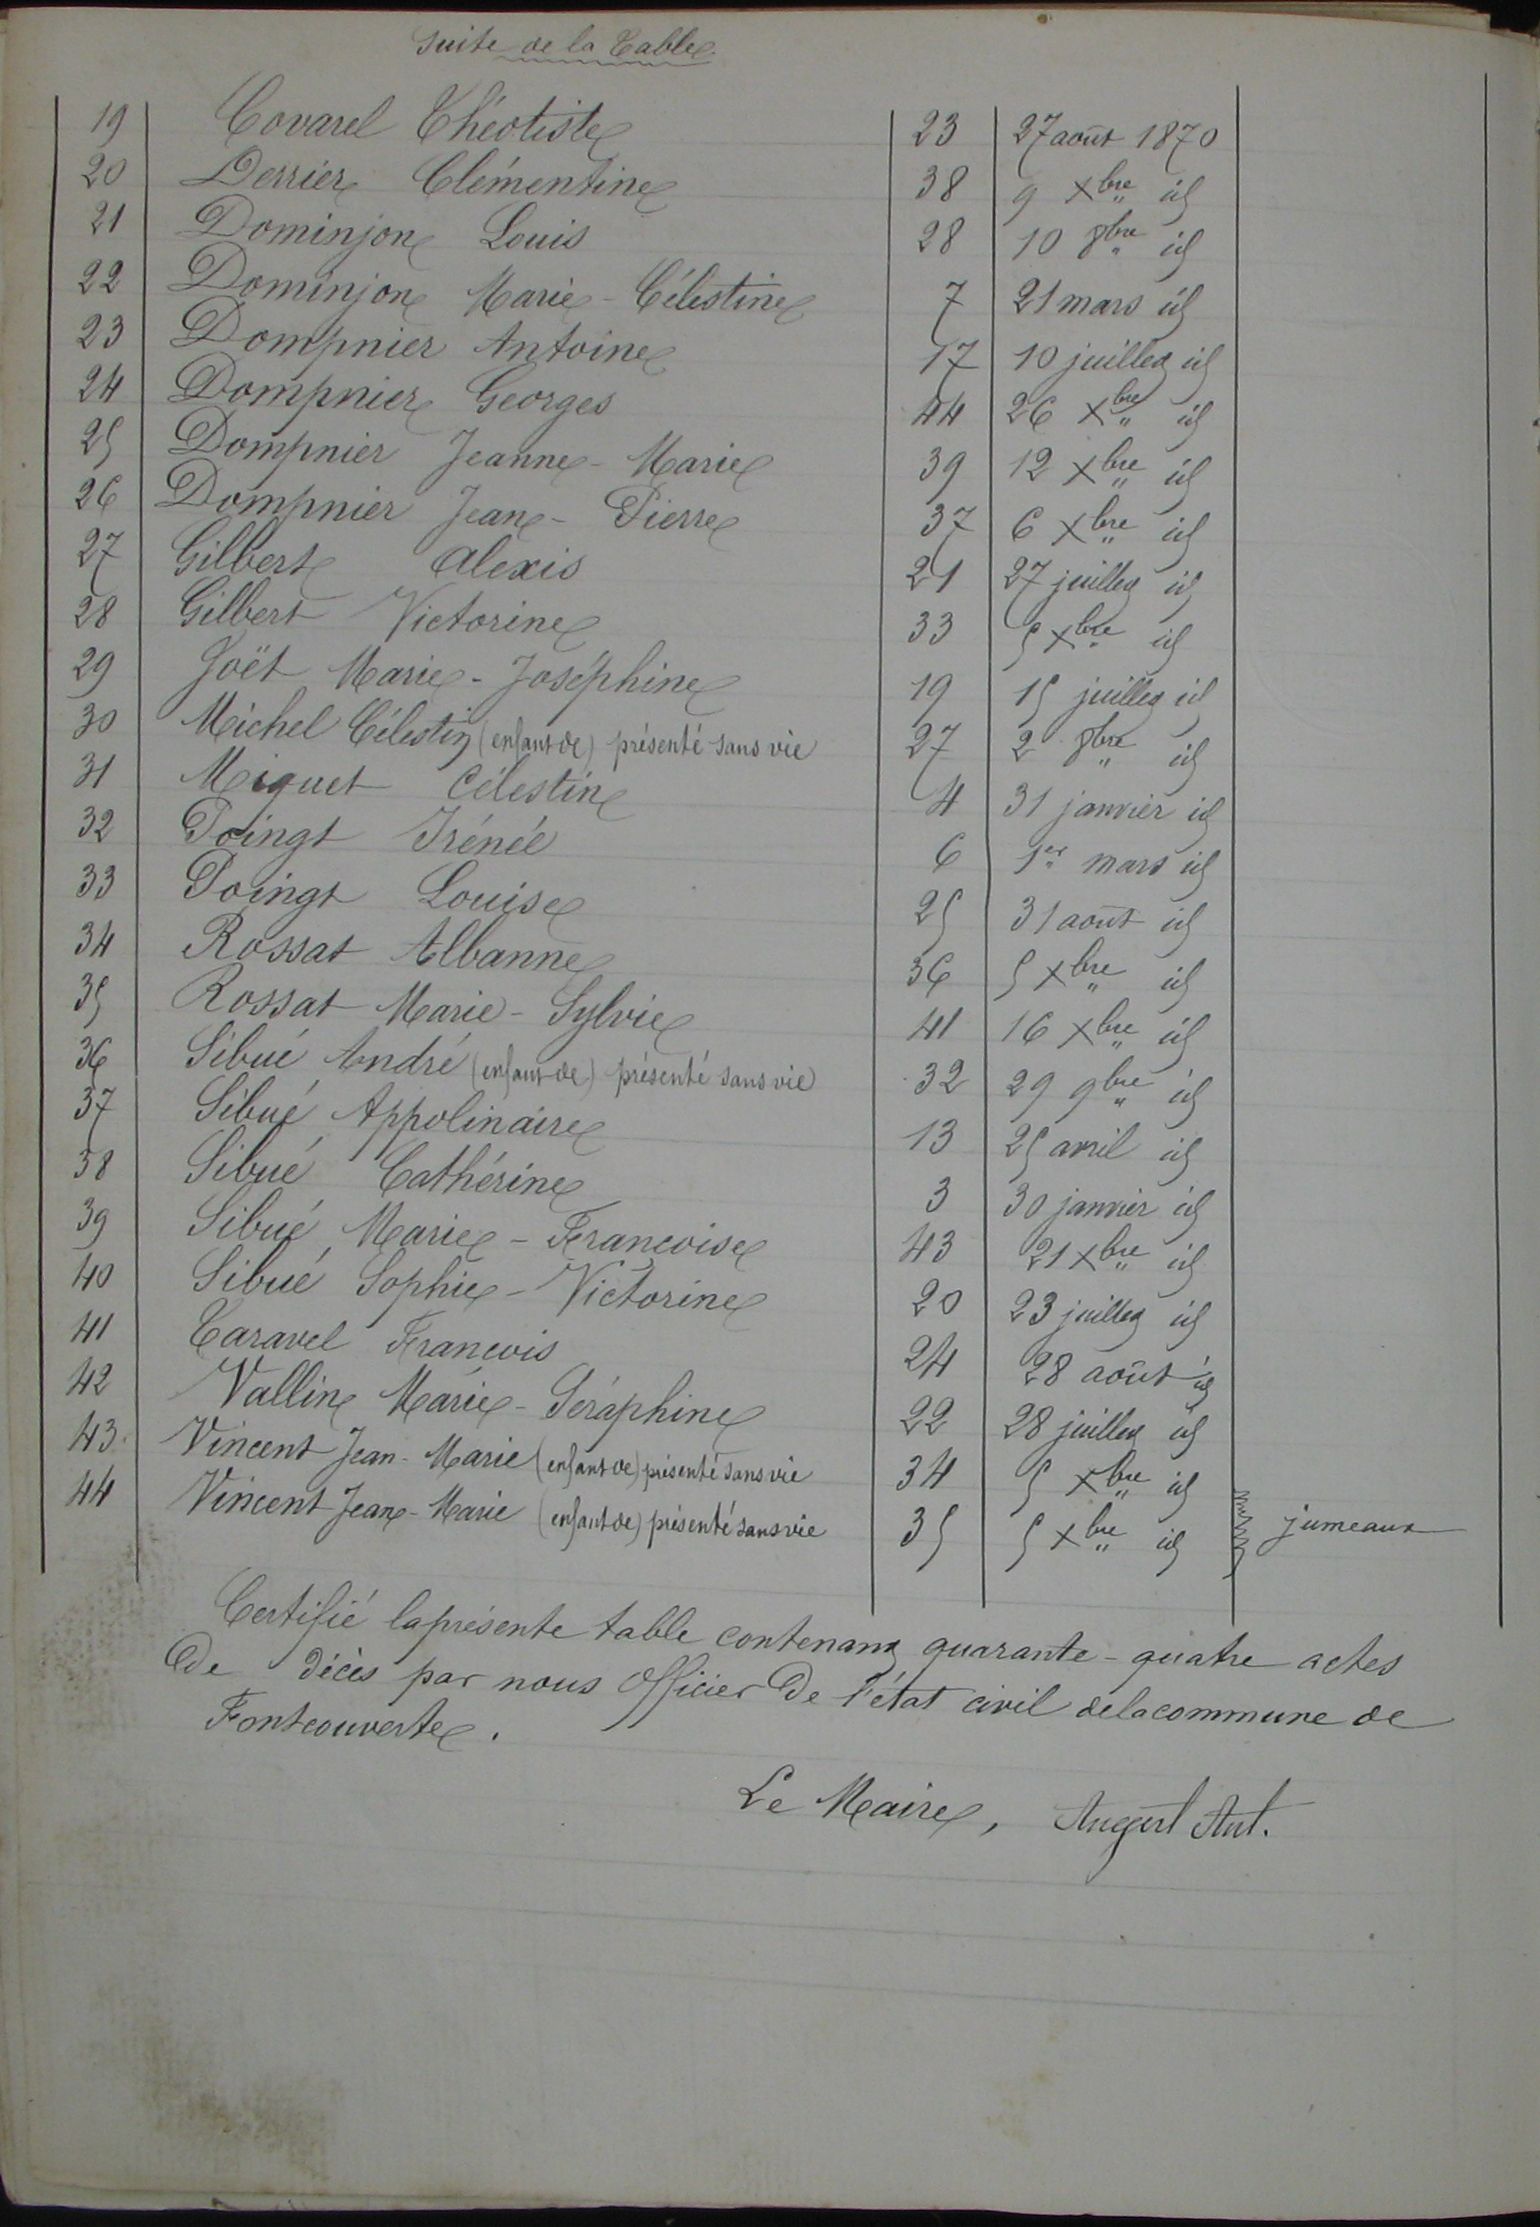 Suite de la Table
19 Covarel Théotiste 23 27 août 1870
20 Derrier Clémentine 38 9 Xbre id
21 Dominjon Louis 28 10 8bre id
22 Dominjon Marie-Célestine 7 21 mars id
23 Dompnier Antoine 17 10 juillet id
24 Dompnier Georges 44 26 Xbre id
25 Dompnier Jeanne-Marie 39 12 Xbre id
26 Dompnier Jean-Pierre 37 6 Xbre id
27 Gilbert Alexis 21 27 juillet id
28 Gilbert Victorine 33 5 Xbre id
29 Joët Marie-Joséphine 19 15 juillet id
30 Michel Célestin (enfant de) présenté sans vie 27 2 8bre id
31 Miquet Célestin 4 31 janvier id
32 Poingt Irénée 6 1er mars id
33 Poingt Louise 25 31 août id
34 Rossat Albanne 36 5 Xbre id
35 Rossat Marie-Sylvie 41 16 Xbre id
36 Sibué André (enfant de) présenté sans vie 32 29 9bre id
37 Sibué Appolinaire 13 25 avril id
38 Sibué Cathérine 3 30 janvier id
39 Sibué Marie-Francoise 43 21 Xbre id
40 Sibué Sophie-Victorine 20 23 juillet id
41 Taravel Francois 24 28 août id
42 Vallin Marie-Séraphine 22 28 juillet id
43 Vincent Jean-Marie (enfant de) présenté sans vie 34 5 Xbre id
44 Vincent Jean-Marie (enfant de) présenté sans vie 35 5 Xbre id jumeaux
Certifié la présente table contenant quarante-quatre actes
de décès par nous Officier de l'état civil de la commune de
Fontcouverte.
Le Maire, Augert Ant.